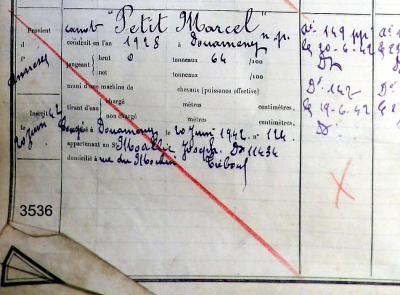 Provient canot "Petit Marcel" n.p.
construit en l'an 1925 à Douarnenez
jaugeant brut 0 tonneaux 64 /100
net tonneaux /100
muni d'une machine de chevaux (puissance effective)
tirant d'eau chargé mètres centimètres,
non chargé mètres centimètres,
à Douarnenez le 20 Juin 1942 n° 124
appartenant au Sr Joseph. Dz 11434
domicilié à rue du Tréboul
Annexes
Inscrit
le 20 Juin 42
A° 149 pp
le 20-6-42
Dz
D° 142
le 19-6-42
D
3536